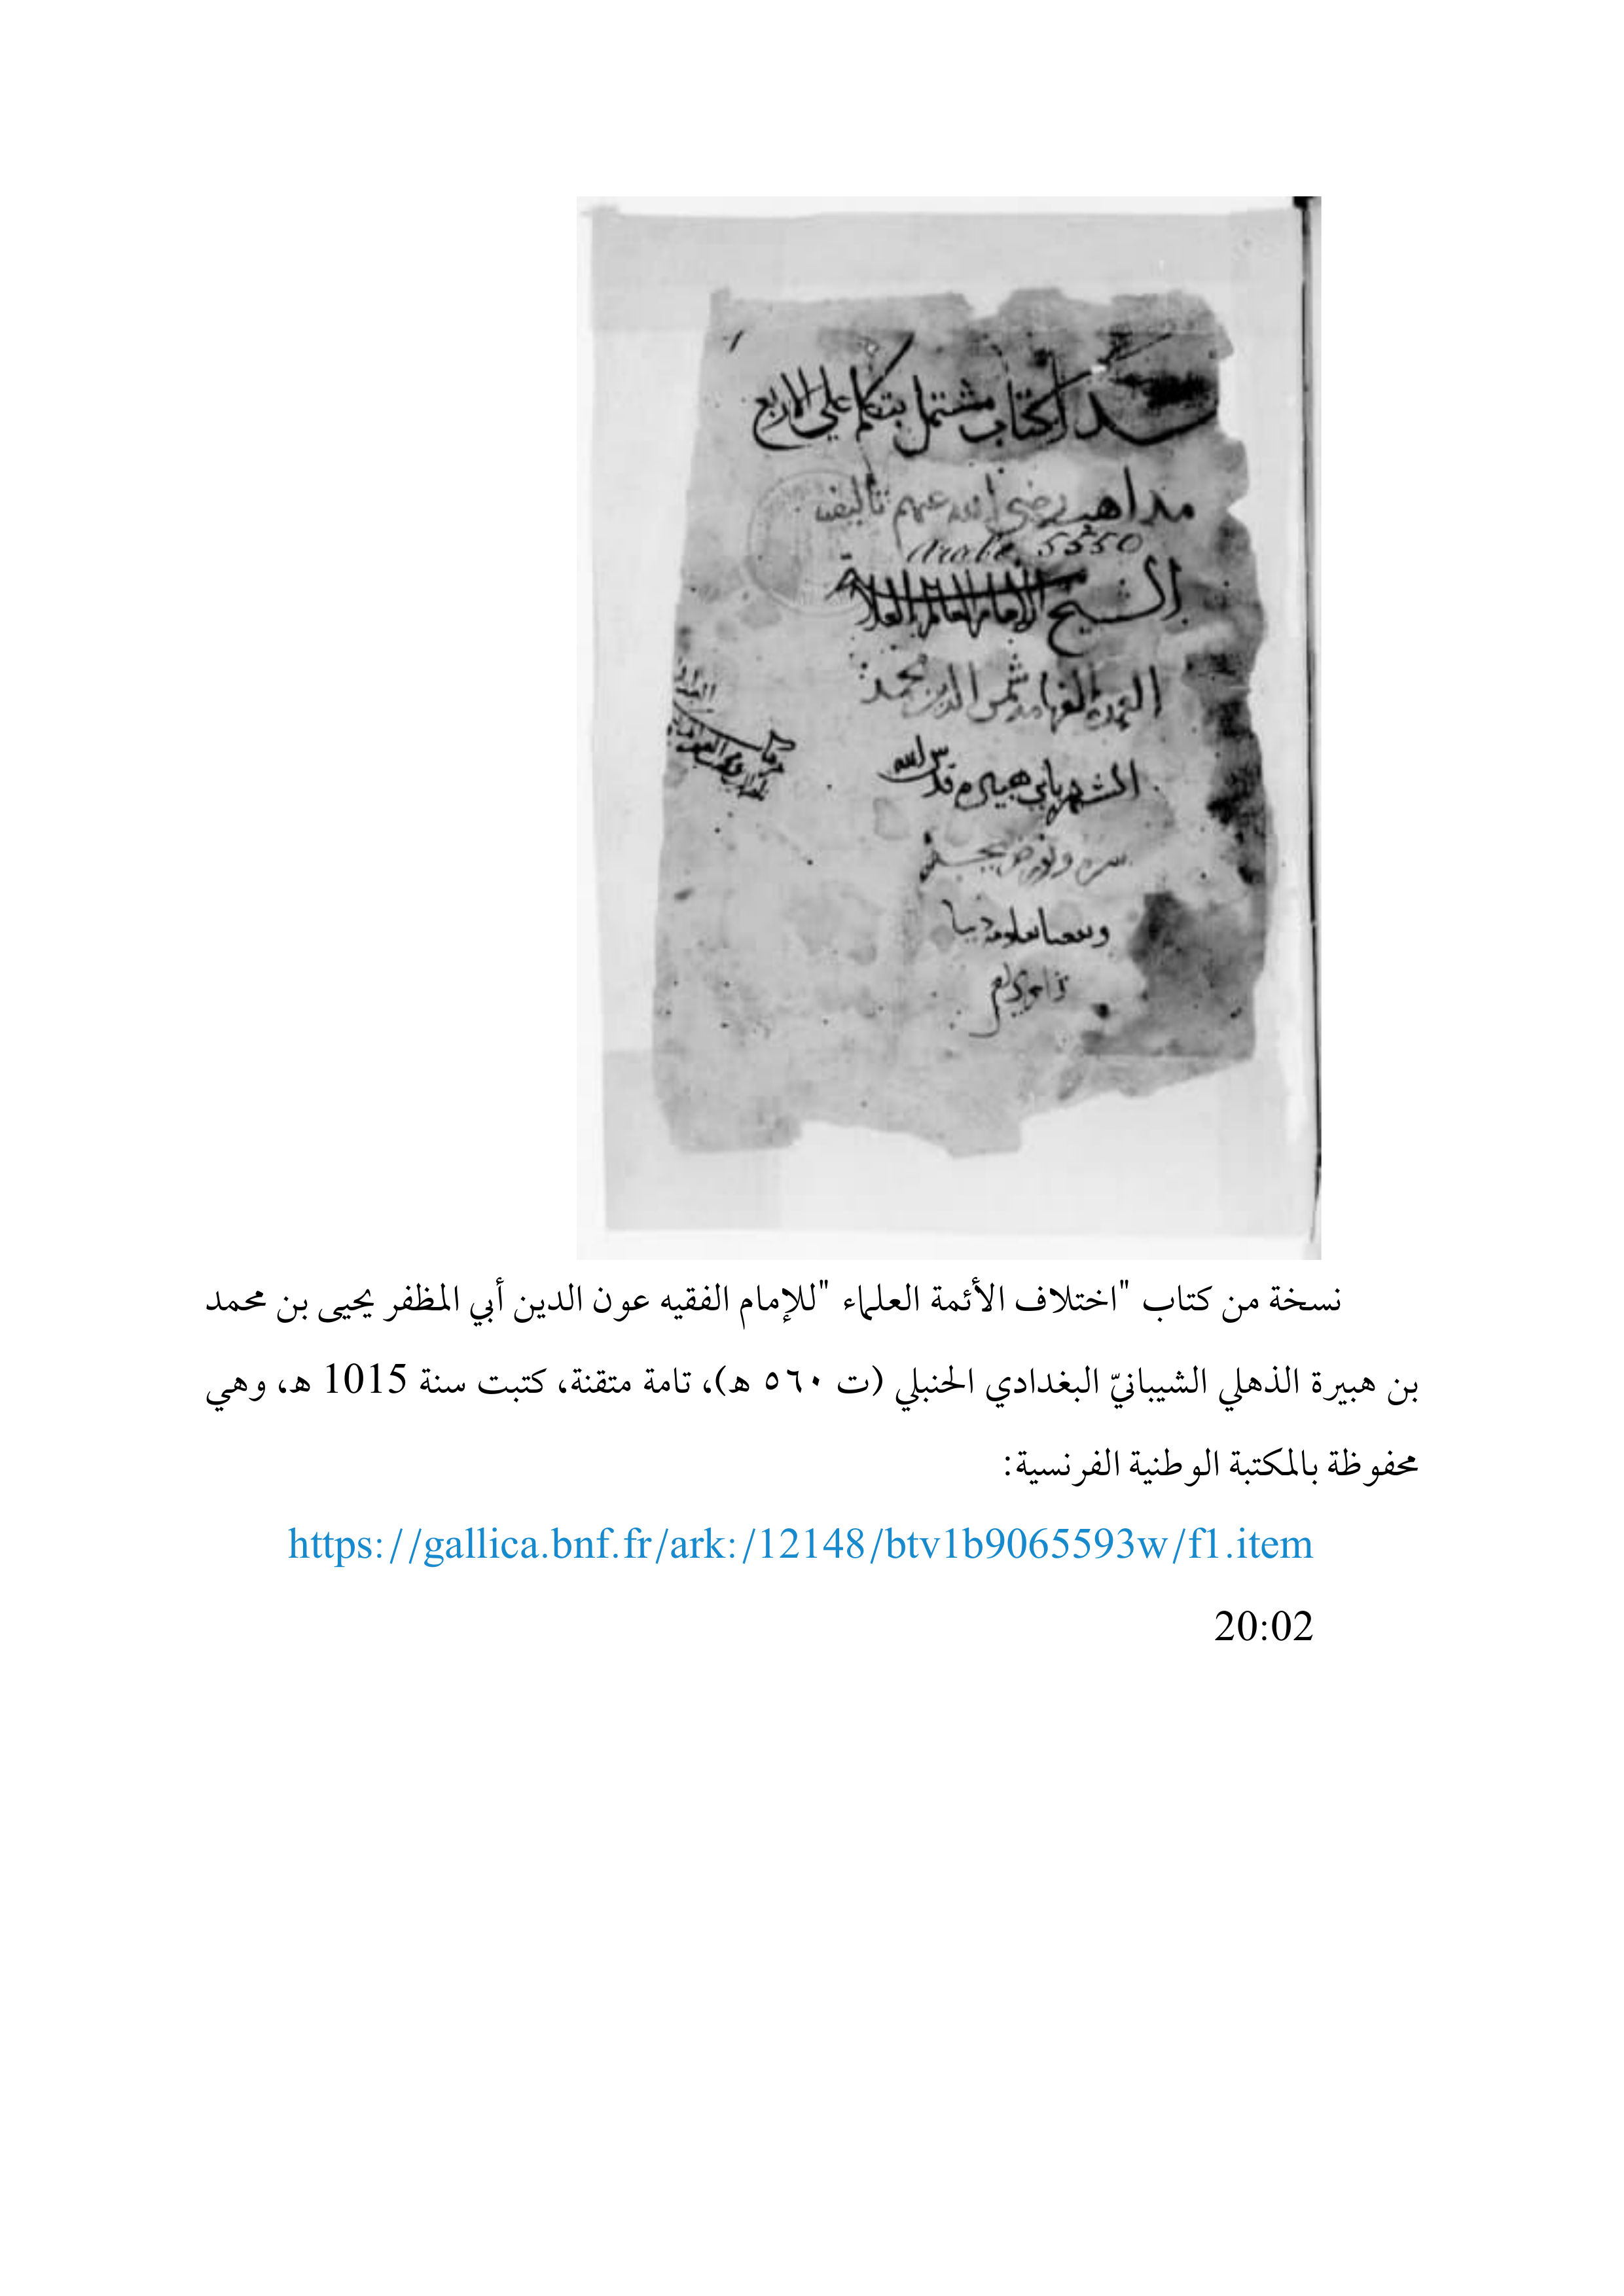 كتاب مشتمل بتكلم علي الاربع
مداهب رضي الله عنهم تاليف
Arabe 5550
الشيخ الامام العالم العلامة
شمس الدين محمد
الشهير بابي هبيره قدس الله
سره ونور ضريحه
نسخة من كتاب "اختلاف الأئمة العلماء "للإمام الفقيه عون الدين أبي المظفر يحيى بن محمد
بن هبيرة الذهلي الشيبانيّ البغدادي الحنبلي (ت ٥٦٠ هـ)، تامة متقنة، كتبت سنة 1015 هـ، وهي
محفوظة بالمكتبة الوطنية الفرنسية:
https://gallica.bnf.fr/ark:/12148/btv1b9065593w/f1.item
20:02